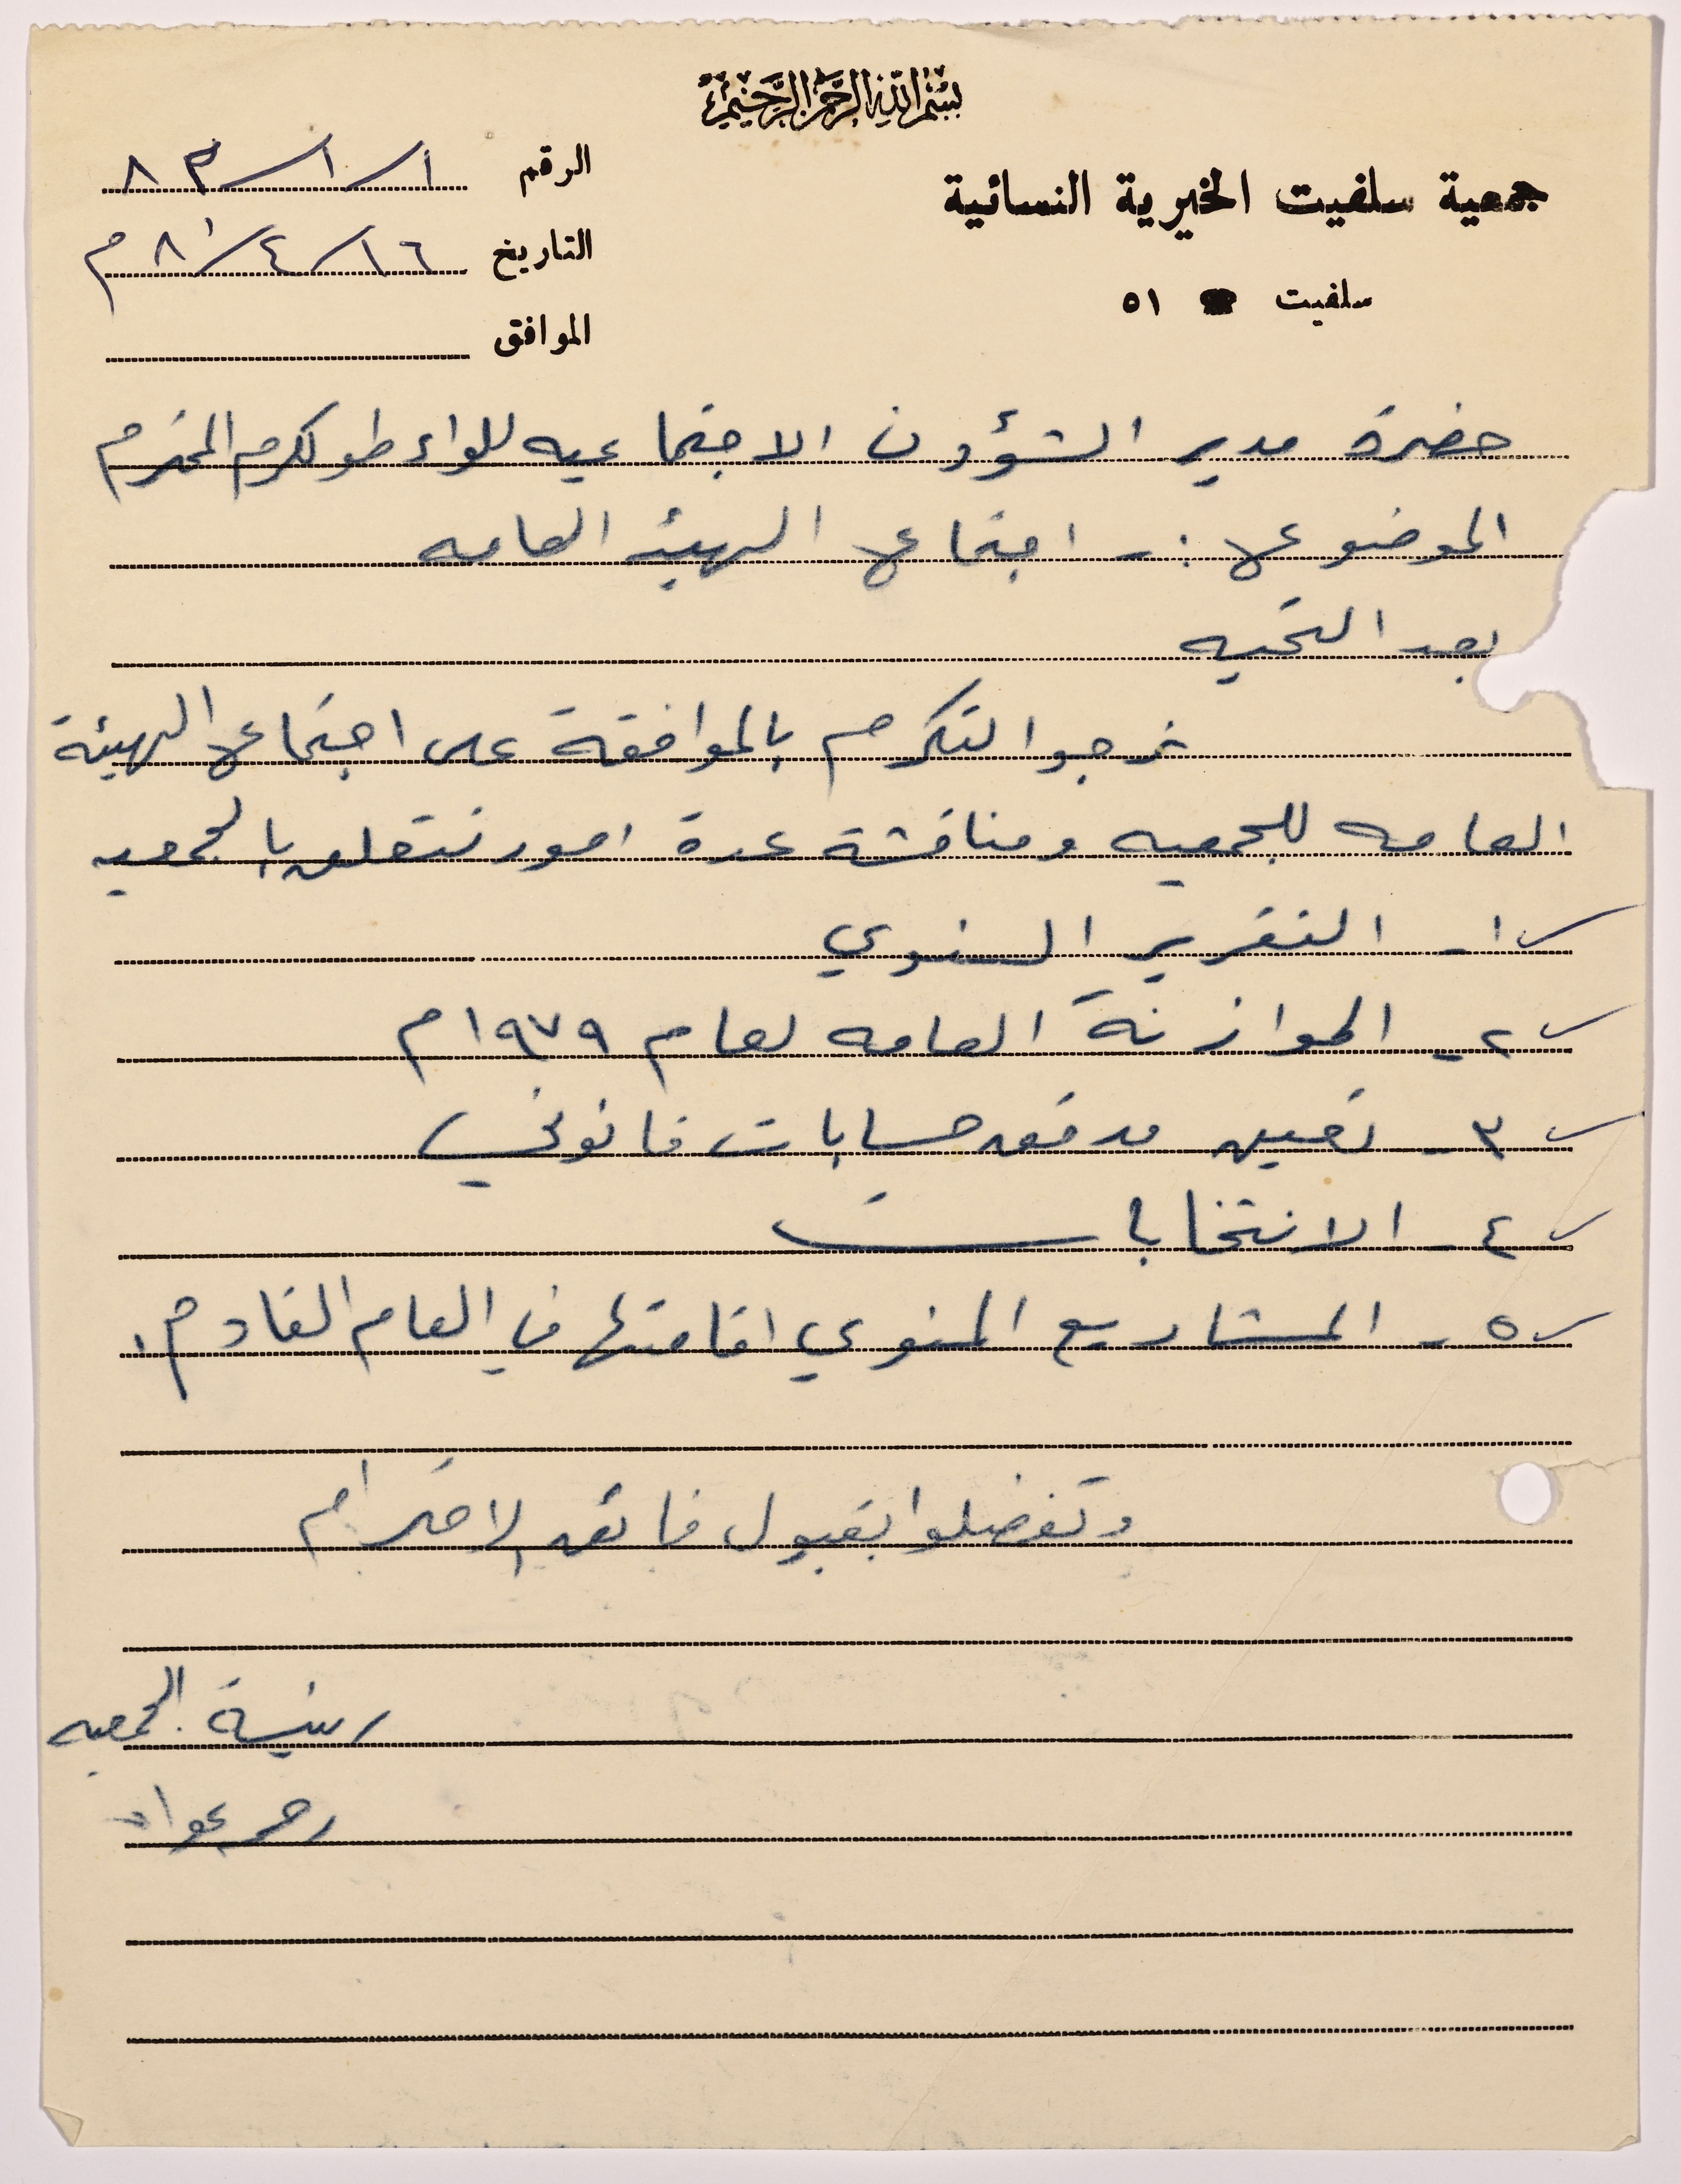 بسم الله الرحمن الرحيم
جمعية سلفيت الخيرية النسائية
سلفيت ☎ ٥١
الرقم ١/١/٨٣
التاريخ ١٦/٤/٨٠م
الموافق
حضرة مدير الشؤون الاجتماعيه للواء طولكرم المحترم
الموضوع :- اجتماع الهيئه العامه
بعد التحيه
نرجوا التكرم بالموافقة على اجتماع الهيئة
العامه للجمعيه ومناقشة عدة امور تتعلق بالجمعيه
١- التقرير السنوي
٢- الموازنة العامه لعام ١٩٧٩م
٣- تعيين مدقق حسابات قانوني
٤- الانتخابات
٥- المشاريع المنوي اقامتها في العام القادم.
وتفضلوا بقبول فائق الاحترام
رئيسة الجمعيه
عواد